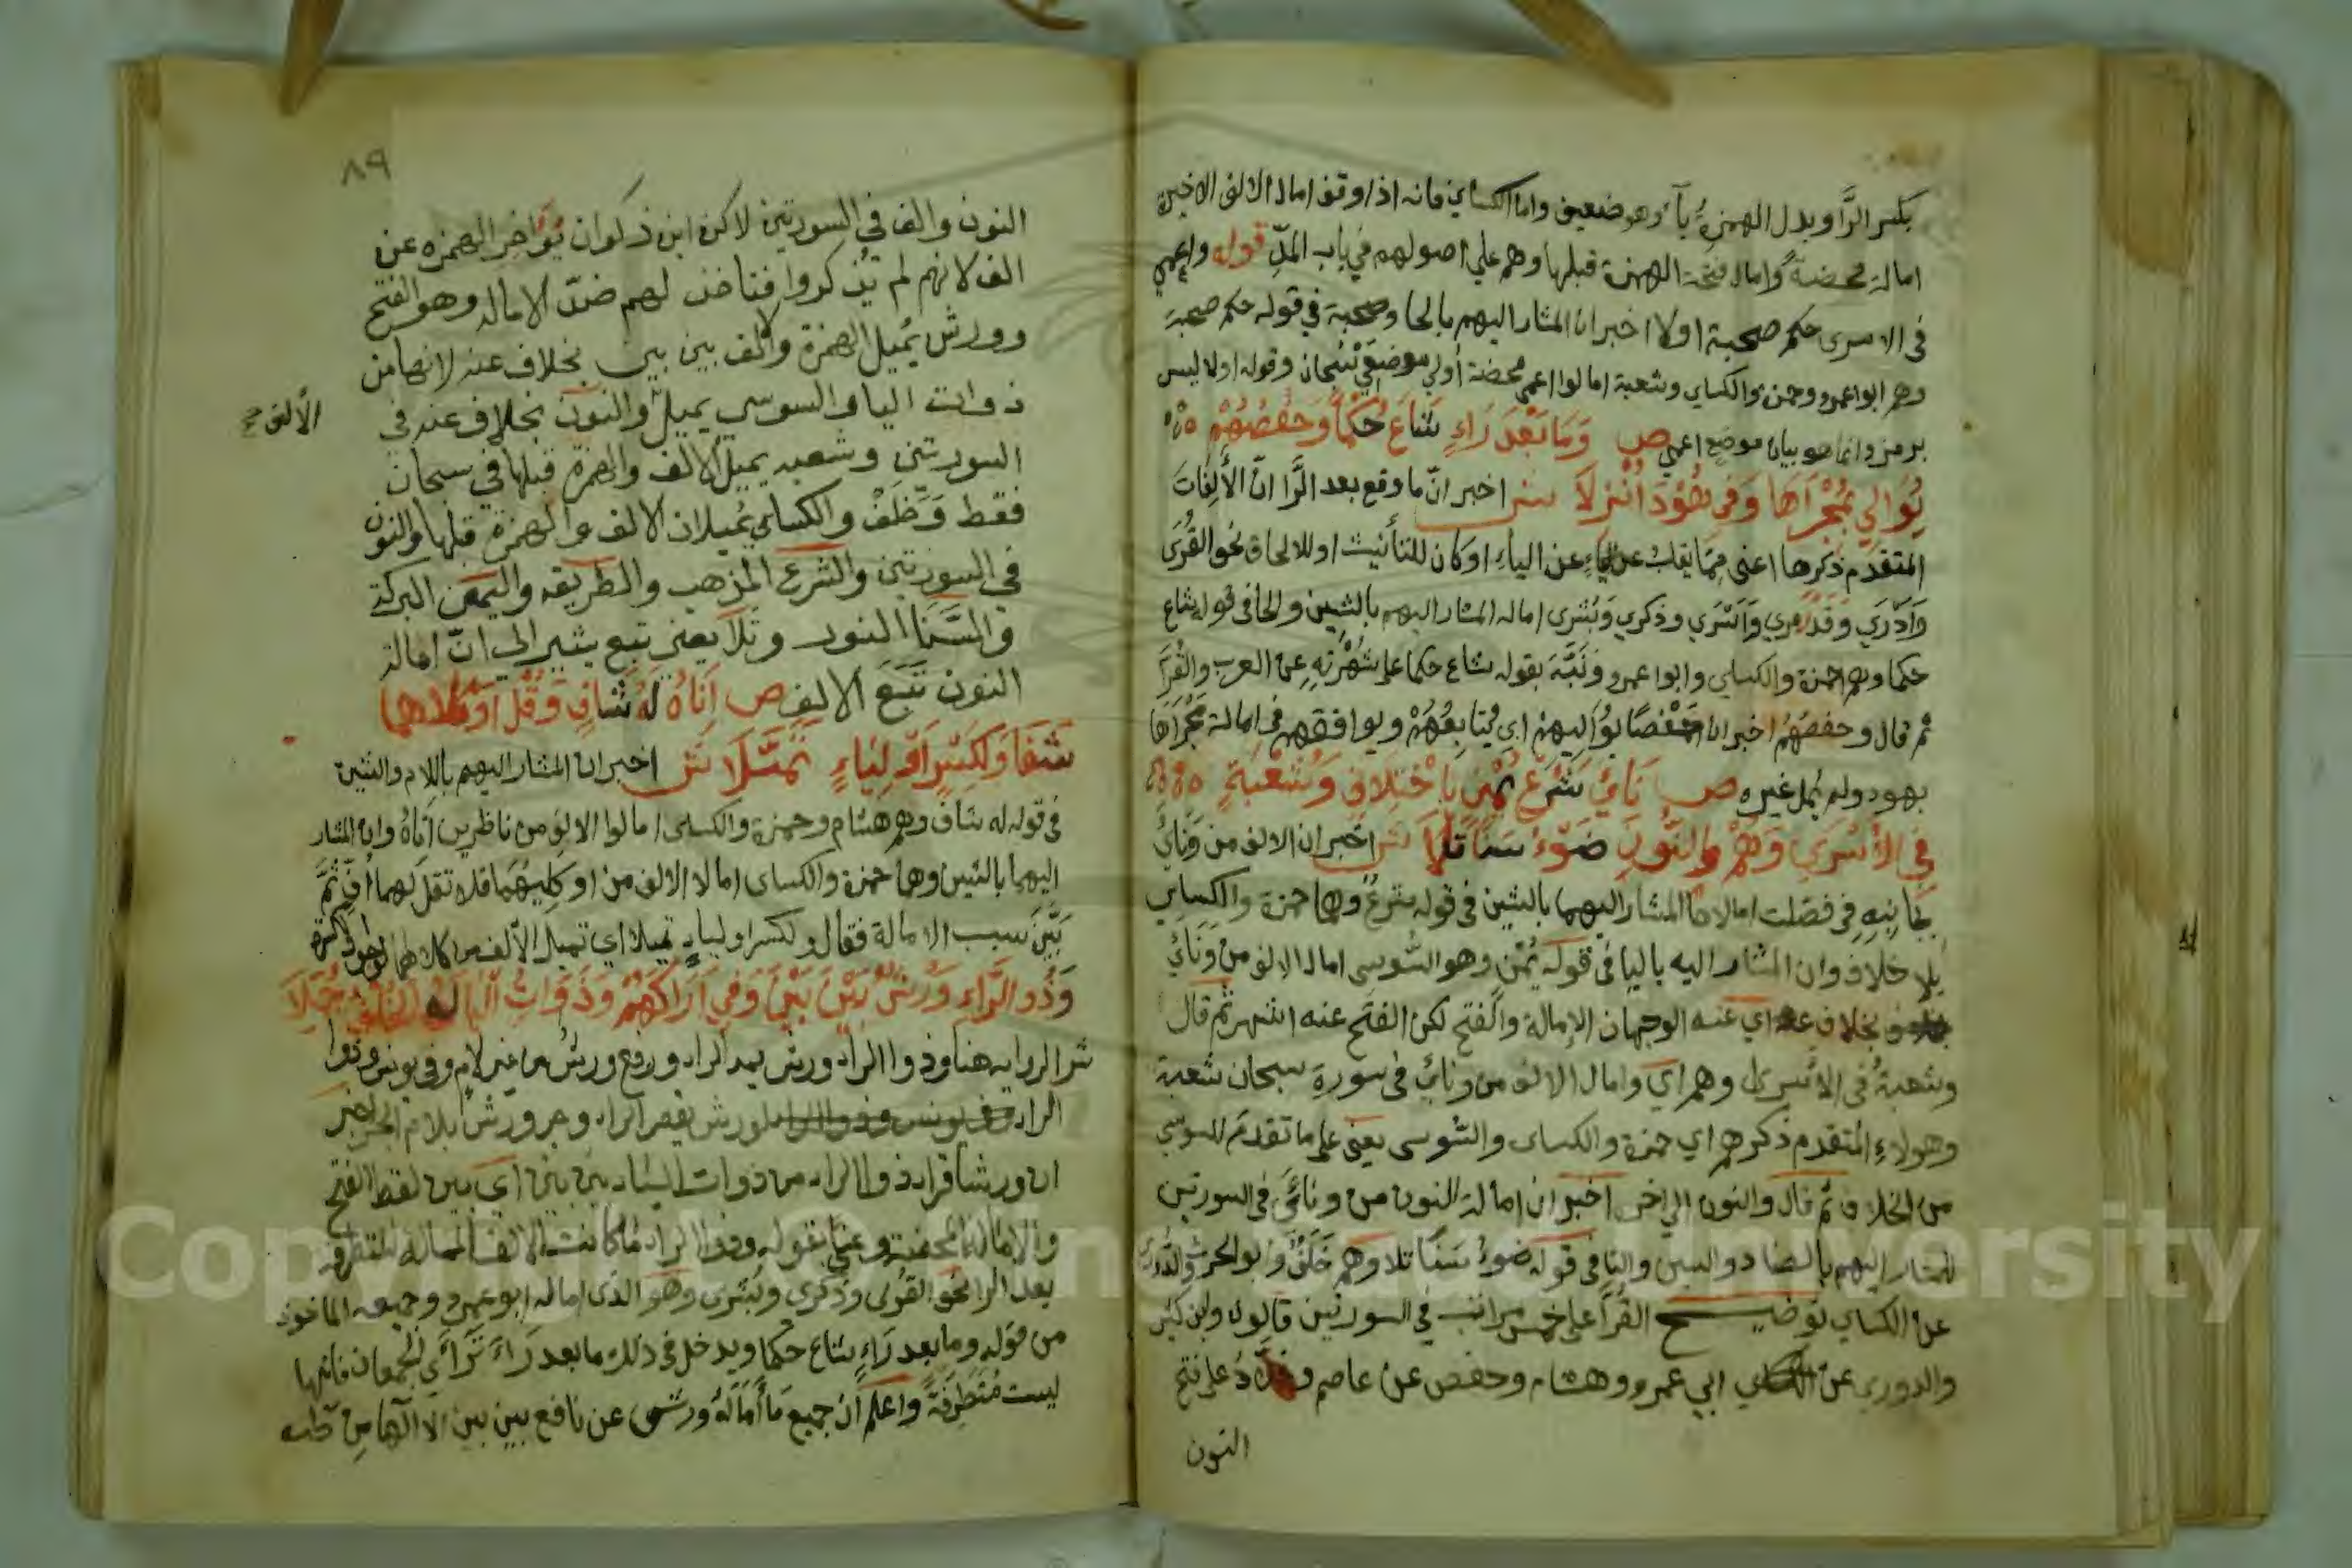 بكسر الرَّا وبدل الهمزةُ يآءً وهو ضعيف واما الكساي فانه اذا وقف امال الالف الاخيرة
امالة محضةً وامال فتحة الهمزة قبلها وهم علي اصولهم في باب المدِّ قوله واعمي
في الاسرى حكم صحبة اولا اخبر ان المشار اليهم بالحا وصحبة في قوله حكم صحبة
وهم ابوا عمرو وحمزة والكساي وشعبة امالوا اعمى محضة أولي موضعي سبحان وقوله اولا ليس
برمز وانما هو بيان موضع اعمي ص وَمَا بَعْدَ رَاءٍ شَاعَ حُكْمًا وَحَفْصُهُمْ
يُوَالِي بِمَجْرَاهَا وَفِي هُوْدَ اُنْزِلَا ش اخبر انّ ما وقع بعد الرَّا انّ الأَلِفَاتَ
المتقدّم ذكرها اعنى ممّا ينقلب عن الياءِ اوكان للتأنيث او للالحاق نحو القُرَى
وَاَدْرَي وَقَدْ نري وَاَشْتَرَي وذكري وَبُشرى اماله المشار اليهم بالشين والحا في قوله شاع
حكما وهم حمزة والكساي وابوا عمرو ونَبَّهَ بقوله شاع حكما على شُهْرَتِهِ عن العرب والقُرَّا
ثم قال وحفصُهُمُ اخبر ان حَفْصًا يُوَاليهمْ اي يُتَابِعُهُمْ ويوافقهم في امالة مَجْرَاهَا
بهود ولم يُمل غيره ص نَأَىٰ شَرْعُ يُمْنٍ بِاخْتِلَافٍ وَشُعْبَةٌ
فِي الْاَسْرَي وَهُمْ وَالنُّونِ ضَوْءُ سَنًا تَلَا ش اخبر ان الالف من وَنَأَيْ
بِجَانِبِهِ فِي فصّلت امالاها المشار اليهما بالشين في قوله شرعُ وهما حمزة والكساي
بلا خلاف وان المشار اليه باليا في قوله يُمْنٍ وهو السُّوسي امال الالف من وَنَأَىٰ
بخلاف اي عنه الوجهان الإمالة والفتح لكن الفتح عنه اشهر ثم قال
وشعبةُ في الاسرى وهم اي وامال الالف من ونأى في سورة سبحان شعبة
وهولاءِ المتقدم ذكرهم اي حمزة والكساى والسُّوسى يعنى على ما تقدم للسوسي
من الخلاف ثم قال والنون الي اخره اخبر ان امالة النون من ونأى في السورتين
للمشار اليهم بالضاد والسين والتا في قوله ضوءُ سَنًا تلا وهم خَلَفٌ وابو الحرث والدُّورى
عن الكساي توضيح القُرَّا على خمس مراتب في السورتين قالون وابن كثير
والدوري عن ابي عمرو وهشام وحفص عن عاصم وخلّادُ على فتح
النون
٨٩
النون والف في السورتين لاكن ابن ذكوان يُؤَاخر الهمزه عن
الف لانهم لم يذكروا فتاخذ لهم ضدّ الاماله وهو الفتح
وورش يُميل الهمزة والف بين بين بخلاف عنه لانها من
ذوات اليا والسوسي يميل والنون بخلاف عنه في
الألف صح
السورتين وشعبه يميل الألف والهمزة قبلها في سبحان
فقط وَخَلَفْ والكساي يميلان الالف والهمزة قبلها والنون
في السورتين والشرع المذهب والطريقه واليمن البركة
والسَّنَا النور وتلا يعني تبع يشير الي انّ امالة
النون تَبَعَ الالف ص اَنَاهُ لَهُ شَافٍ وَقُلْ اَوْ كِلَاهُمَا
شَفَا وَلِكَسْرٍ اَوْ لِيَاءٍ تَمَيَّلَا ش اخبر ان المشار اليهم باللام والشين
في قوله له شافٍ وهم هشام وحمزة والكساى امالوا الالف من ناظرين اَنَاهُ وان المشار
اليهما بالشين وهما حمزة والكساى امالا الالف من اوكليهما فلا تقل لهما اُفّ ثمَّ
بَيَّنَ سبب الامالة فقال ولكسر اولياءٍ تميلا اي تميل الألف من كلاهما لوجود الكسرة
وَذُو الرَّاءِ وَرْشٌ بَيْنَ بَيْنَ وَفِي اَرَاكَهُمْ وَذَوَاتُ الْيَا لَهُ الخُلْفُ جُمِّلَا
ش الروايه هنا وذوا الراء ورش بمد الراء ورفع ورشُ من غير لامٍ وفي يونس وذوا
الراء لورش بقصر الراء وجر ورش بلام الجر اخبر
ان ورشا قرا ذوا الراء من ذوات الياء بين بين اي بين لفظ الفتح
والامالة المحضة وعنى بقوله وذوا الراء ما كانت الالف الممالة المتطرفه
بعد الرا نحو القُرى وذكرى وبُشرى وهو الذى اماله ابو عمرو وجميعه الماخوذ
من قوله وما بعد رَاءٍ شاع حكما ويدخل في ذلك ما بعد رَاءَ تَرَاءَى الجمعان فانها
ليست مُتَطَرِّفَةً واعلم ان جميع مَا أَمَالَهُ ورش عن نافع بين بين الا الها من طه